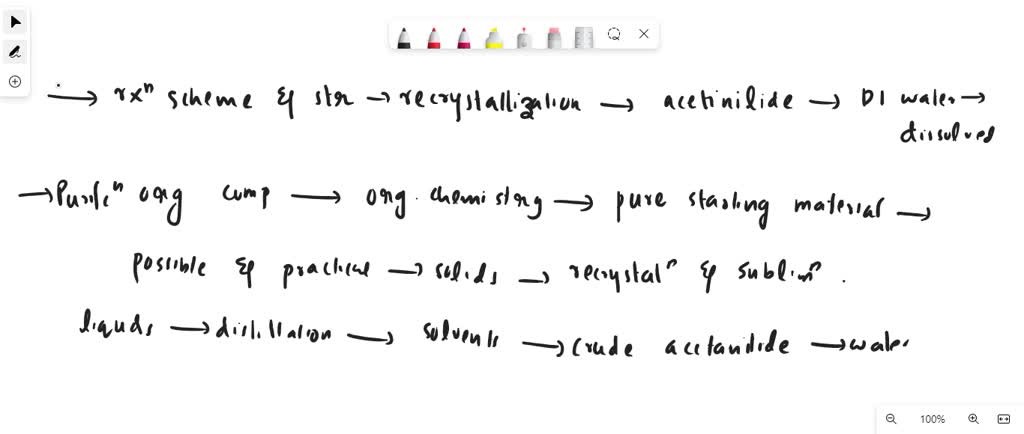 → rxⁿ scheme & str → recrystallization → acetinilide → DI water →
dissolved
→ Purifcⁿ org comp → org. chemistry → pure starting material →
possible & practical → solids → recrystalⁿ & sublimⁿ.
liquds → distillation → solvents → crude acetanilide → water
100%